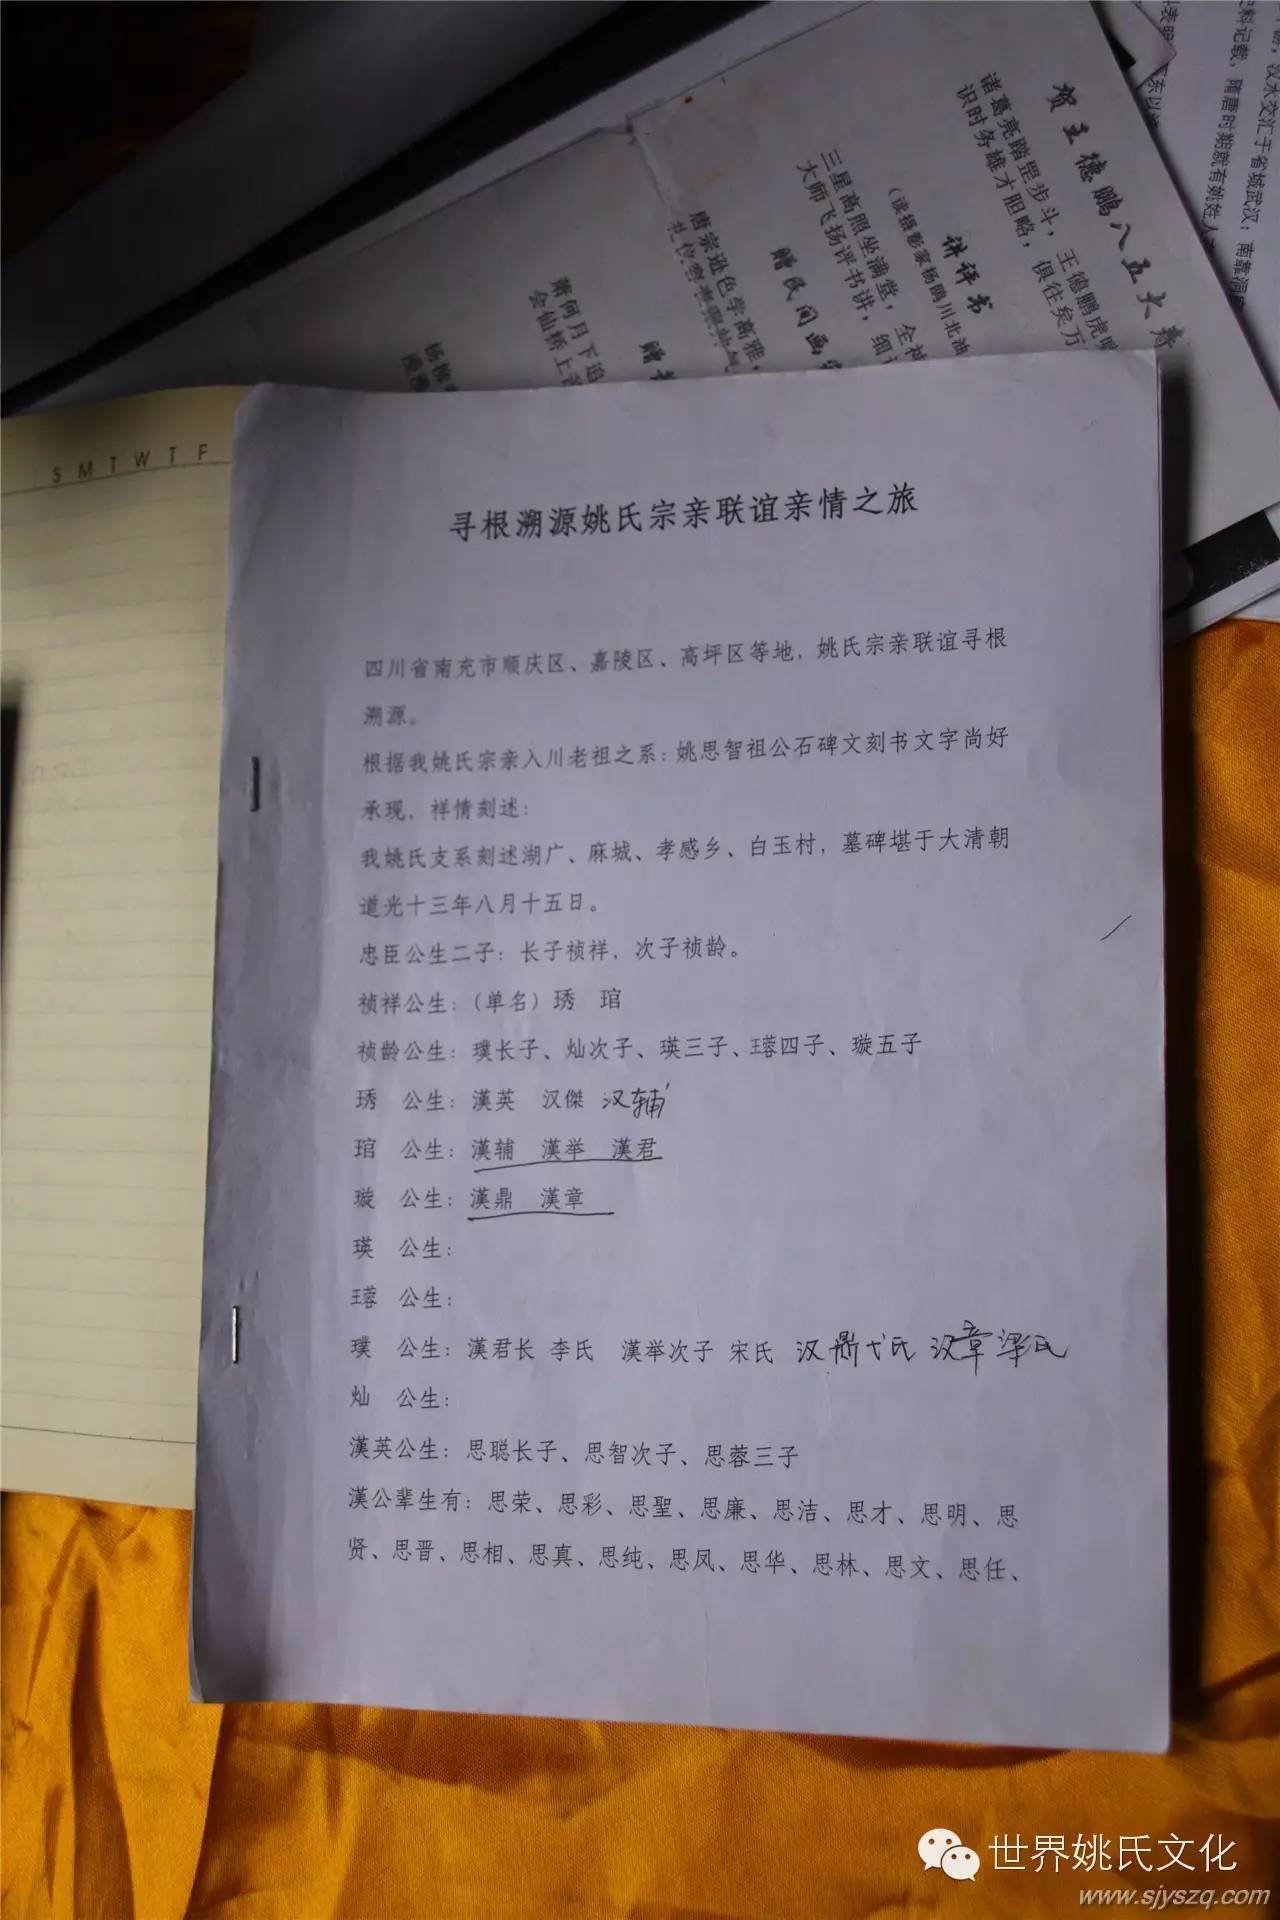 贺王德鹏八五大寿
诸葛亮踏罡步斗，王德鹏虎
识时务雄才胆略，俱往矣万
讲评书
（读摄影家杨鸥川北油
三星高照坐满堂，全神
大师飞扬评书讲，细
赠民间画
唐宗逊色学高雅，
赠
萧何月下追
会仙桥上
杨柳
汉水交汇于省城武汉；南靠洞
史料记载，隋唐时期就有姚姓人
S M T W T F
寻根溯源姚氏宗亲联谊亲情之旅
四川省南充市顺庆区、嘉陵区、高坪区等地，姚氏宗亲联谊寻根
溯源。
根据我姚氏宗亲入川老祖之系：姚思智祖公石碑文刻书文字尚好
承现，祥情刻述：
我姚氏支系刻述湖广、麻城、孝感乡、白玉村，墓碑堪于大清朝
道光十三年八月十五日。
忠臣公生二子：长子祯祥，次子祯龄。
祯祥公生：（单名）琇 琯
祯龄公生：璞长子、灿次子、瑛三子、王蓉四子、璇五子
琇 公生：漢英 汉傑 汉辅
琯 公生：漢辅 漢举 漢君
璇 公生：漢鼎 漢章
瑛 公生：
王蓉 公生：
璞 公生：漢君长 李氏 漢举次子 宋氏 汉鼎弋氏 汉章梁氏
灿 公生：
漢英公生：思聪长子、思智次子、思蓉三子
漢公辈生有：思荣、思彩、思聖、思廉、思洁、思才、思明、思
贤、思晋、思相、思真、思纯、思凤、思华、思林、思文、思任、
世界姚氏文化
www.sjyszq.com